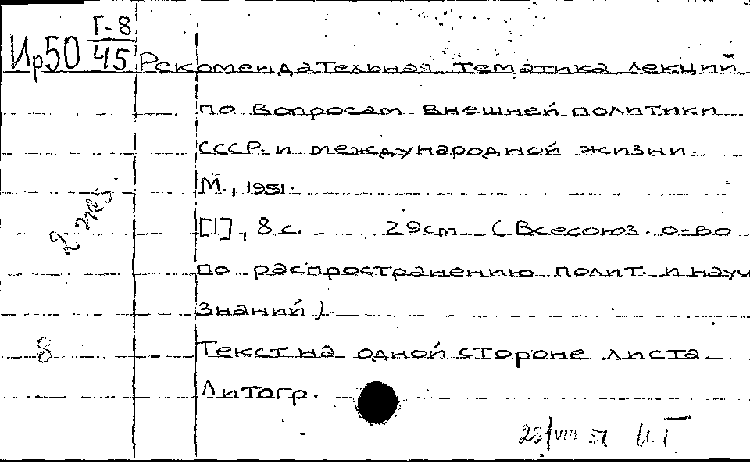 Г-8
Ир50 45 Рекомендательная тематика лекций
по вопросам внешней политики
СССР и международной жизни.
М., 1951.
[1], 8 с. 29см (Всесоюз. о-во
по распространению полит. и науч
знаний).
2 экз.
8 Текст на одной стороне листа.
Литогр.
28/VIII 51 И.Г